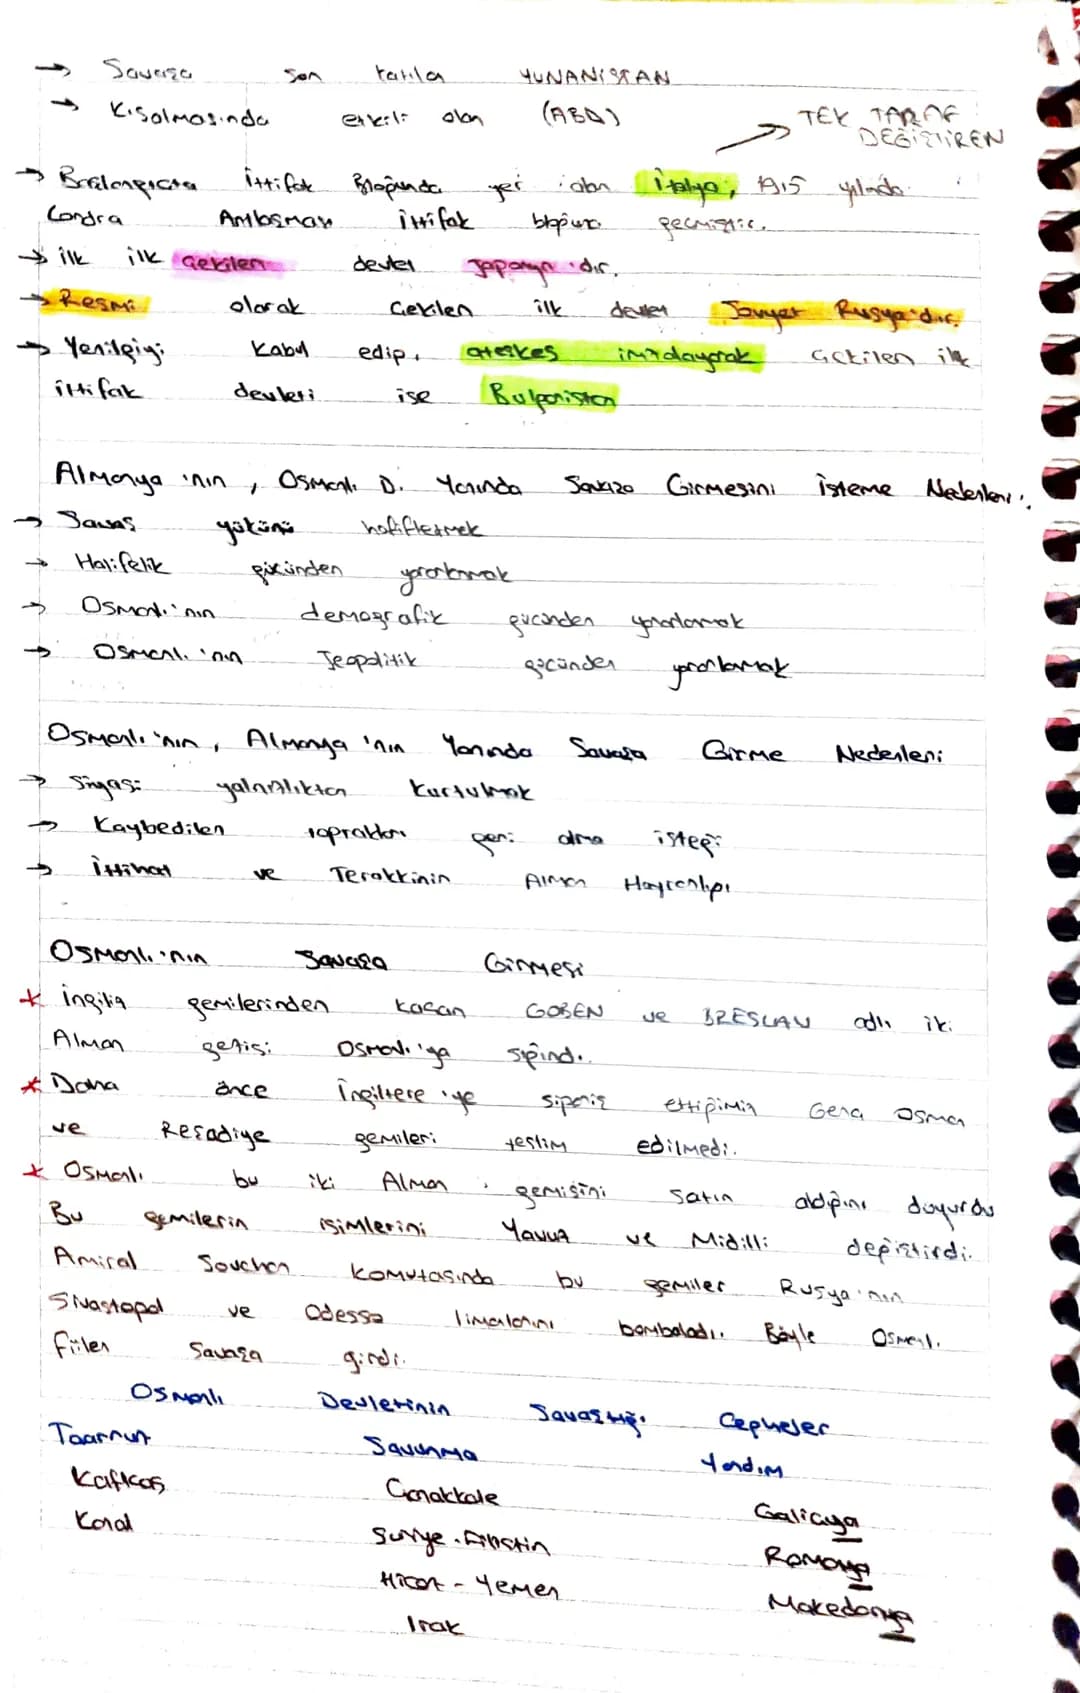 → Savaşa son katılan YUNANİSTAN
→ Kısalmasında etkili olan (ABD)
→ TEK TARAF DEĞİŞTİREN
→ Başlangıçta İttifak Bloğunda yer alan İtalya, 1915 yılında
Londra Antlaşması İttifak bloğuna geçmiştir.
→ ilk ilk Çekilen devlet Japonya'dır.
→ Resmi olarak Çekilen ilk devlet Sovyet Rusya'dır.
→ Yenilgiyi Kabul edip, ateşkes imzalayarak Çekilen ilk
ittifak devleti ise Bulgaristan
Almanya'nın, Osmanlı D. Yanında Savaşa Girmesini İsteme Nedenleri:
→ Savaş yükünü hafifletmek
→ Halifelik gücünden yararlanmak
→ Osmanlı'nın demografik gücünden yararlanmak
→ Osmanlı'nın Jeopolitik gücünden yararlanmak
Osmanlı'nın, Almanya'nın Yanında Savaşa Girme Nedenleri
→ Siyasi yalnızlıktan kurtulmak
→ Kaybedilen toprakları geri alma isteği
→ İttihat ve Terakkinin Alman Hayranlığı
Osmanlı'nın Savaşa Girmesi
* İngiliz gemilerinden kaçan GOBEN ve BRESLAU adlı iki
Alman gemisi Osmanlı'ya sığındı.
* Daha önce İngiltere'ye sipariş ettiğimiz Osman
ve Reşadiye gemileri teslim edilmedi.
* Osmanlı bu iki Alman gemisini satın aldığını duyurdu
Bu gemilerin isimlerini Yavuz ve Midilli değiştirdi.
Amiral Souchon komutasında bu gemiler Rusya'nın
Sivastopol ve Odessa limanlarını bombaladı. Böyle Osmanlı
fiilen Savaşa girdi.
Osmanlı Devletinin Savaştığı Cepheler
Taarruz Savunma Yardım
Kafkas Çanakkale Galiçya
Kanal Suriye-Filistin Romanya
Hicaz - Yemen Makedonya
Irak